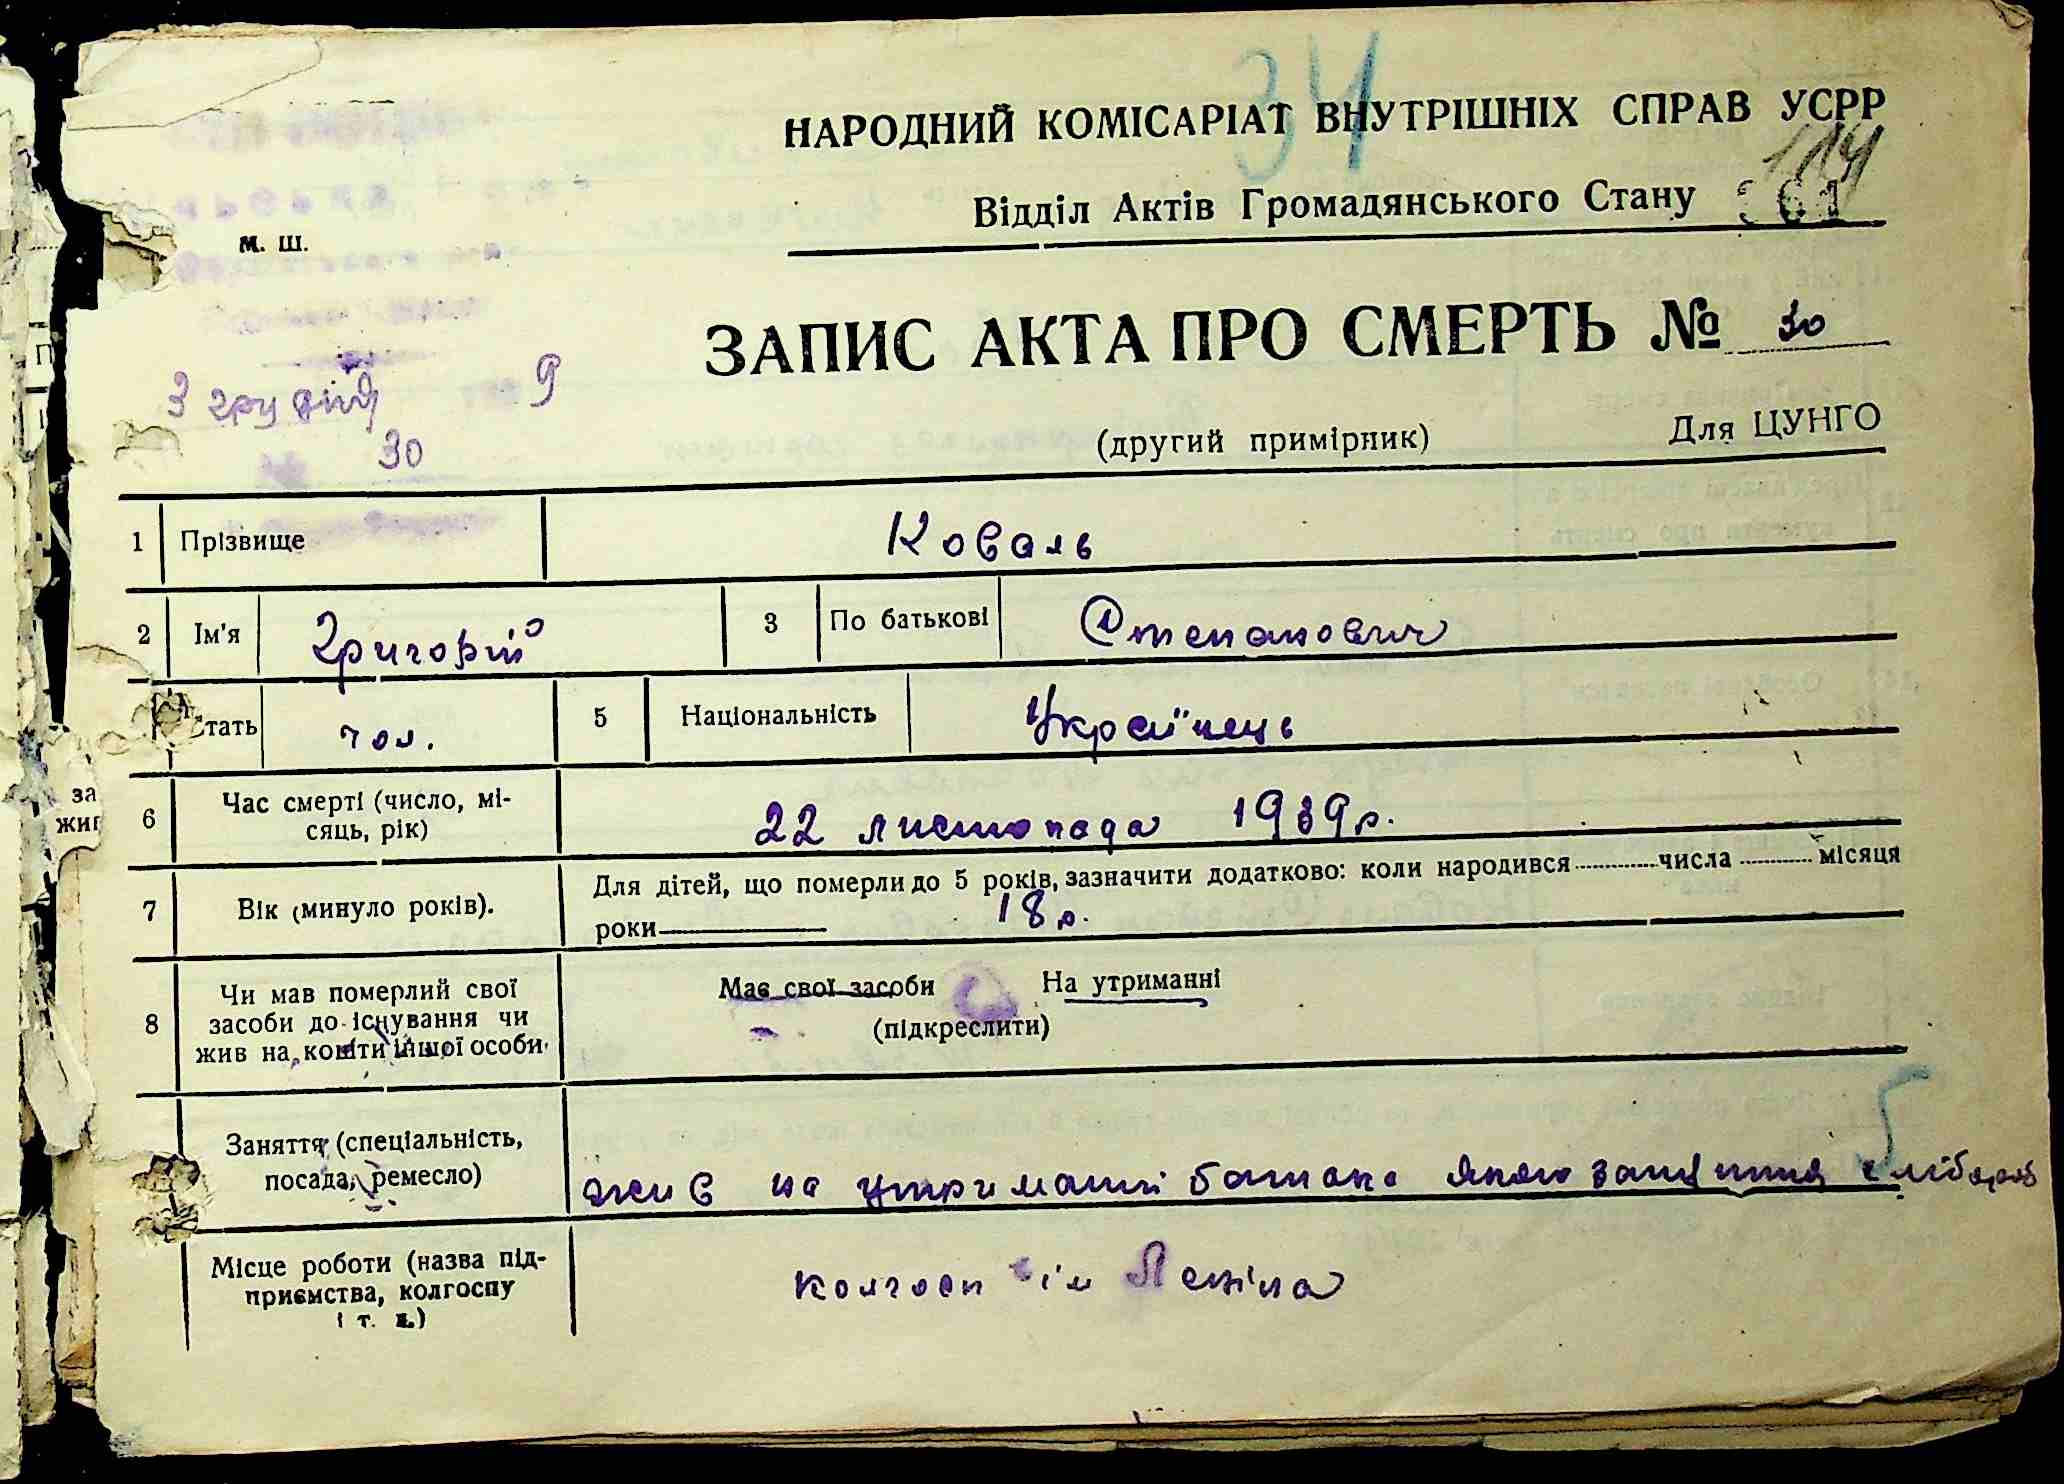 34
НАРОДНИЙ КОМІСАРІАТ ВНУТРІШНІХ СПРАВ УСРР
Відділ Актів Громадянського Стану
м. ш.
ЗАПИС АКТА ПРО СМЕРТЬ № 30
3 грудня 9
30
(другий примірник) Для ЦУНГО
1 Прізвище Коваль
2 Ім'я Григорій 3 По батькові Степанович
тать чол. 5 Національність Українець
6 Час смерті (число, мі-
сяць, рік) 22 листопада 1939 р.
7 Вік (минуло років). Для дітей, що померли до 5 років, зазначити додатково: коли народився числа місяця
роки 18 р.
8 Чи мав померлий свої
засоби до існування чи
жив на кошти іншої особи
Має свої засоби На утриманні
(підкреслити)
5
Заняття (спеціальність,
посада, ремесло) жив на утриманні батька якого заняття хлібороб
Місце роботи (назва під-
приємства, колгоспу
і т. п.) колгосп ім Леніна
за
жив